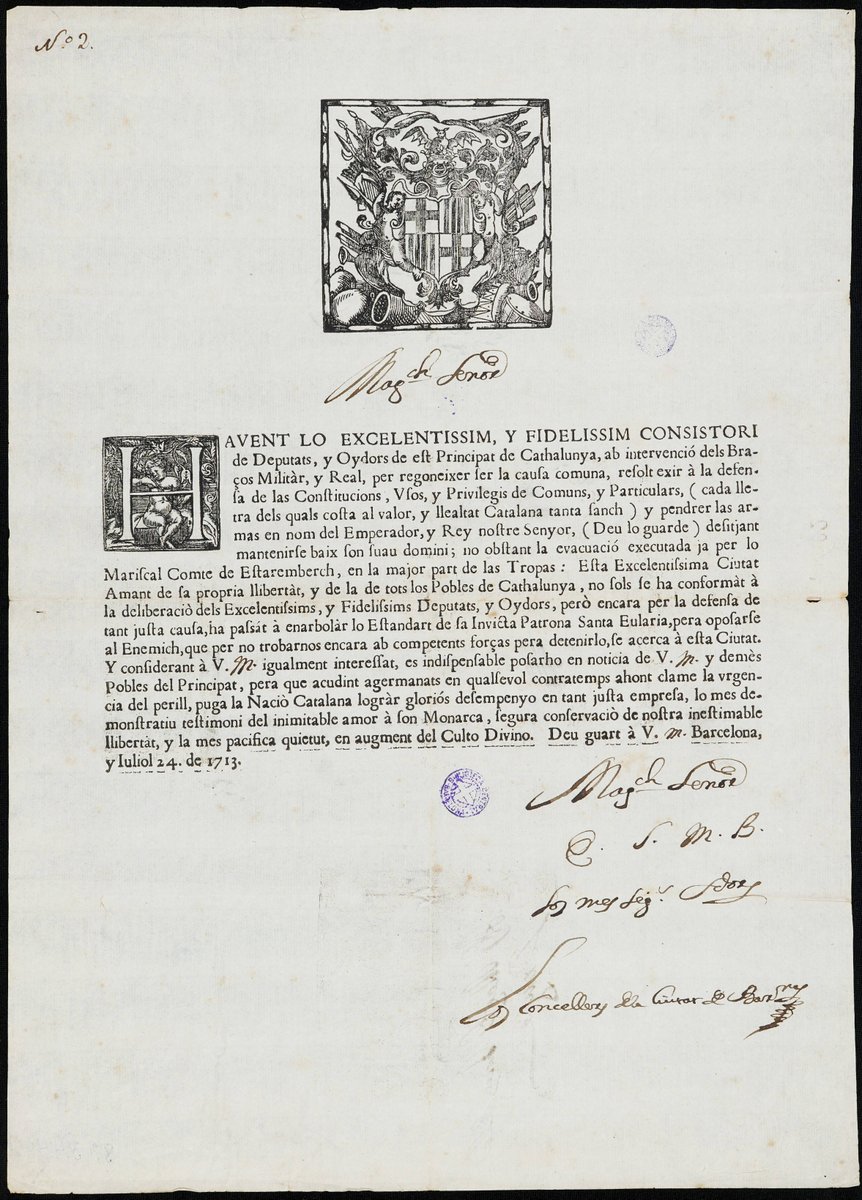 N.º 2.
Mag.ch Senor
HAVENT LO EXCELENTISSIM, Y FIDELISSIM CONSISTORI
de Deputats, y Oydors de est Principat de Cathalunya, ab intervenció dels Bra-
ços Militàr, y Real, per regoneixer ser la causa comuna, resolt exir à la defen-
sa de las Constitucions, Vsos, y Privilegis de Comuns, y Particulars, ( cada lle-
tra dels quals costa al valor, y llealtat Catalana tanta sanch ) y pendrer las ar-
mas en nom del Emperador, y Rey nostre Senyor, ( Deu lo guarde ) desitjant
mantenirse baix son suau domini; no obstant la evacuació executada ja per lo
Mariscal Comte de Estaremberch, en la major part de las Tropas: Esta Excelentissima Ciutat
Amant de sa propria llibertàt, y de la de tots los Pobles de Cathalunya, no sols se ha conformàt à
la deliberaciò dels Excelentissims, y Fidelissims Deputats, y Oydors, però encara per la defensa de
tant justa causa, ha passàt à enarbolàr lo Estandart de sa Invicta Patrona Santa Eularia, pera oposarse
al Enemich, que per no trobarnos encara ab competents forças pera detenirlo, se acerca à esta Ciutat.
Y considerant à V. M. igualment interessat, es indispensable posarho en noticia de V. M. y demès
Pobles del Principat, pera que acudint agermanats en qualsevol contratemps ahont clame la vrgen-
cia del perill, puga la Naciò Catalana logràr gloriós desempenyo en tant justa empresa, lo mes de-
monstratiu testimoni del inimitable amor à son Monarca, segura conservaciò de nostra inestimable
llibertàt, y la mes pacifica quietut, en augment del Culto Divino. Deu guart à V. M. Barcelona,
y Iuliol 24. de 1713.
Mag.ch Senor
S. M. B.
mes seg.
Concellers de la Ciutat de Bar.na